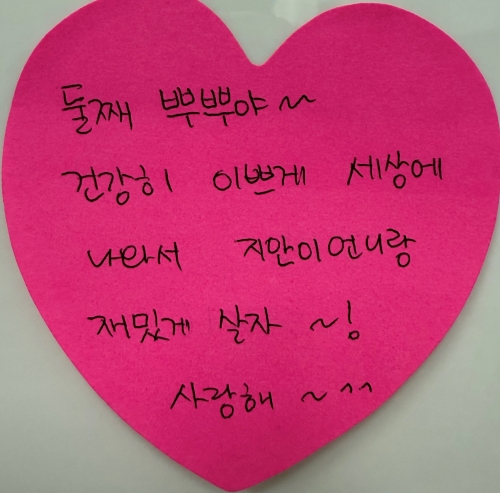 둘째 뿌뿌야~
건강히 이쁘게 세상에
나와서 지안이언니랑
재밌게 살자 ~!
사랑해 ~ ^^